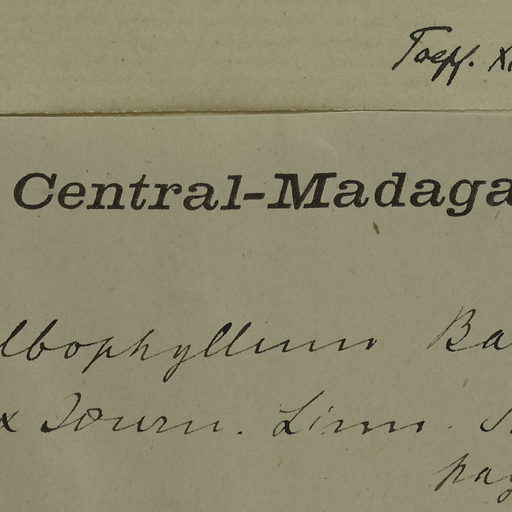 Central-Madaga
lbophyllum Ba
x Journ. Linn. S
pag